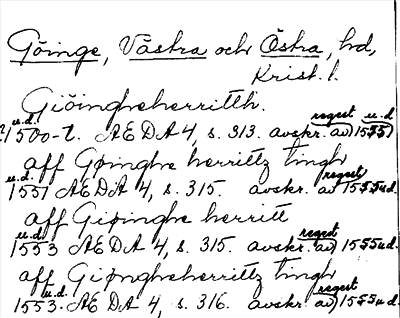 Göinge, Västra och Östra, hd,
Krist. l.
Giöingheherritth.
u.d. regest u.d.
1500-t. AEDA 4, s. 313. avskr. av) 1555)
aff Gøinghe herrittz tingh
u.d. regest
1551 AEDA 4, s. 315. avskr. av) 1555 u.d.
aff Giøinghe herritt
u.d. regest
1553 AEDA 4, s. 315. avskr. av) 1555 u.d.
aff Giøingheherrittz tingh
u.d. regest
1553. AEDA 4, s. 316. avskr. av) 1555 u.d.